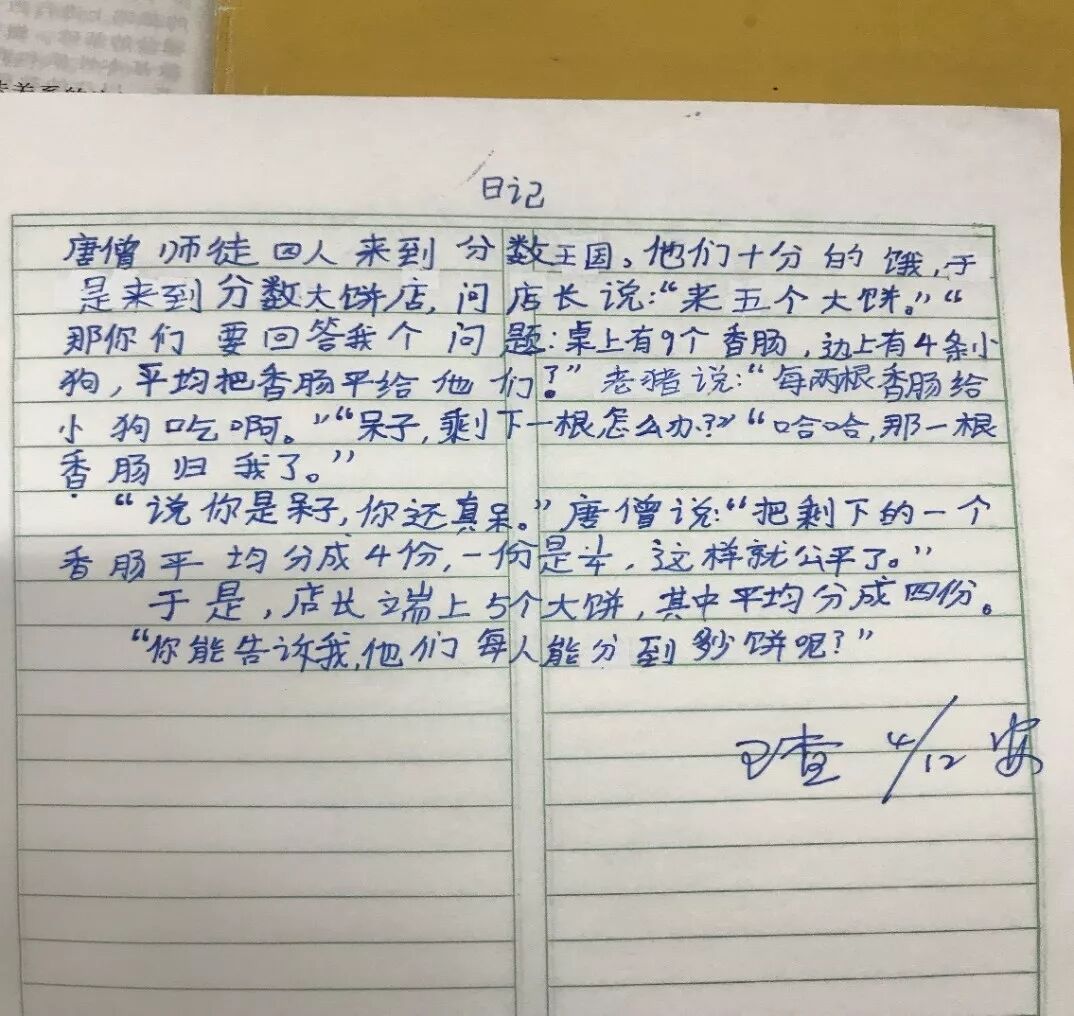 日记
唐僧师徒四人来到分数王国。他们十分的饿,于
是来到分数大饼店,问店长说:“来五个大饼。”“
那你们要回答我个问题:桌上有9个香肠,边上有4条小
狗,平均把香肠平给他们?”老猪说:“每两根香肠给
小狗吃啊。”“呆子,剩下一根怎么办?”“哈哈,那一根
香肠归我了。”
“说你是呆子,你还真呆。”唐僧说:“把剩下的一个
香肠平均分成4份,一份是1/4,这样就公平了。”
于是,店长端上5个大饼,其中平均分成四份。
“你能告诉我,他们每人能分到多少饼呢?”
已查 4/12 安